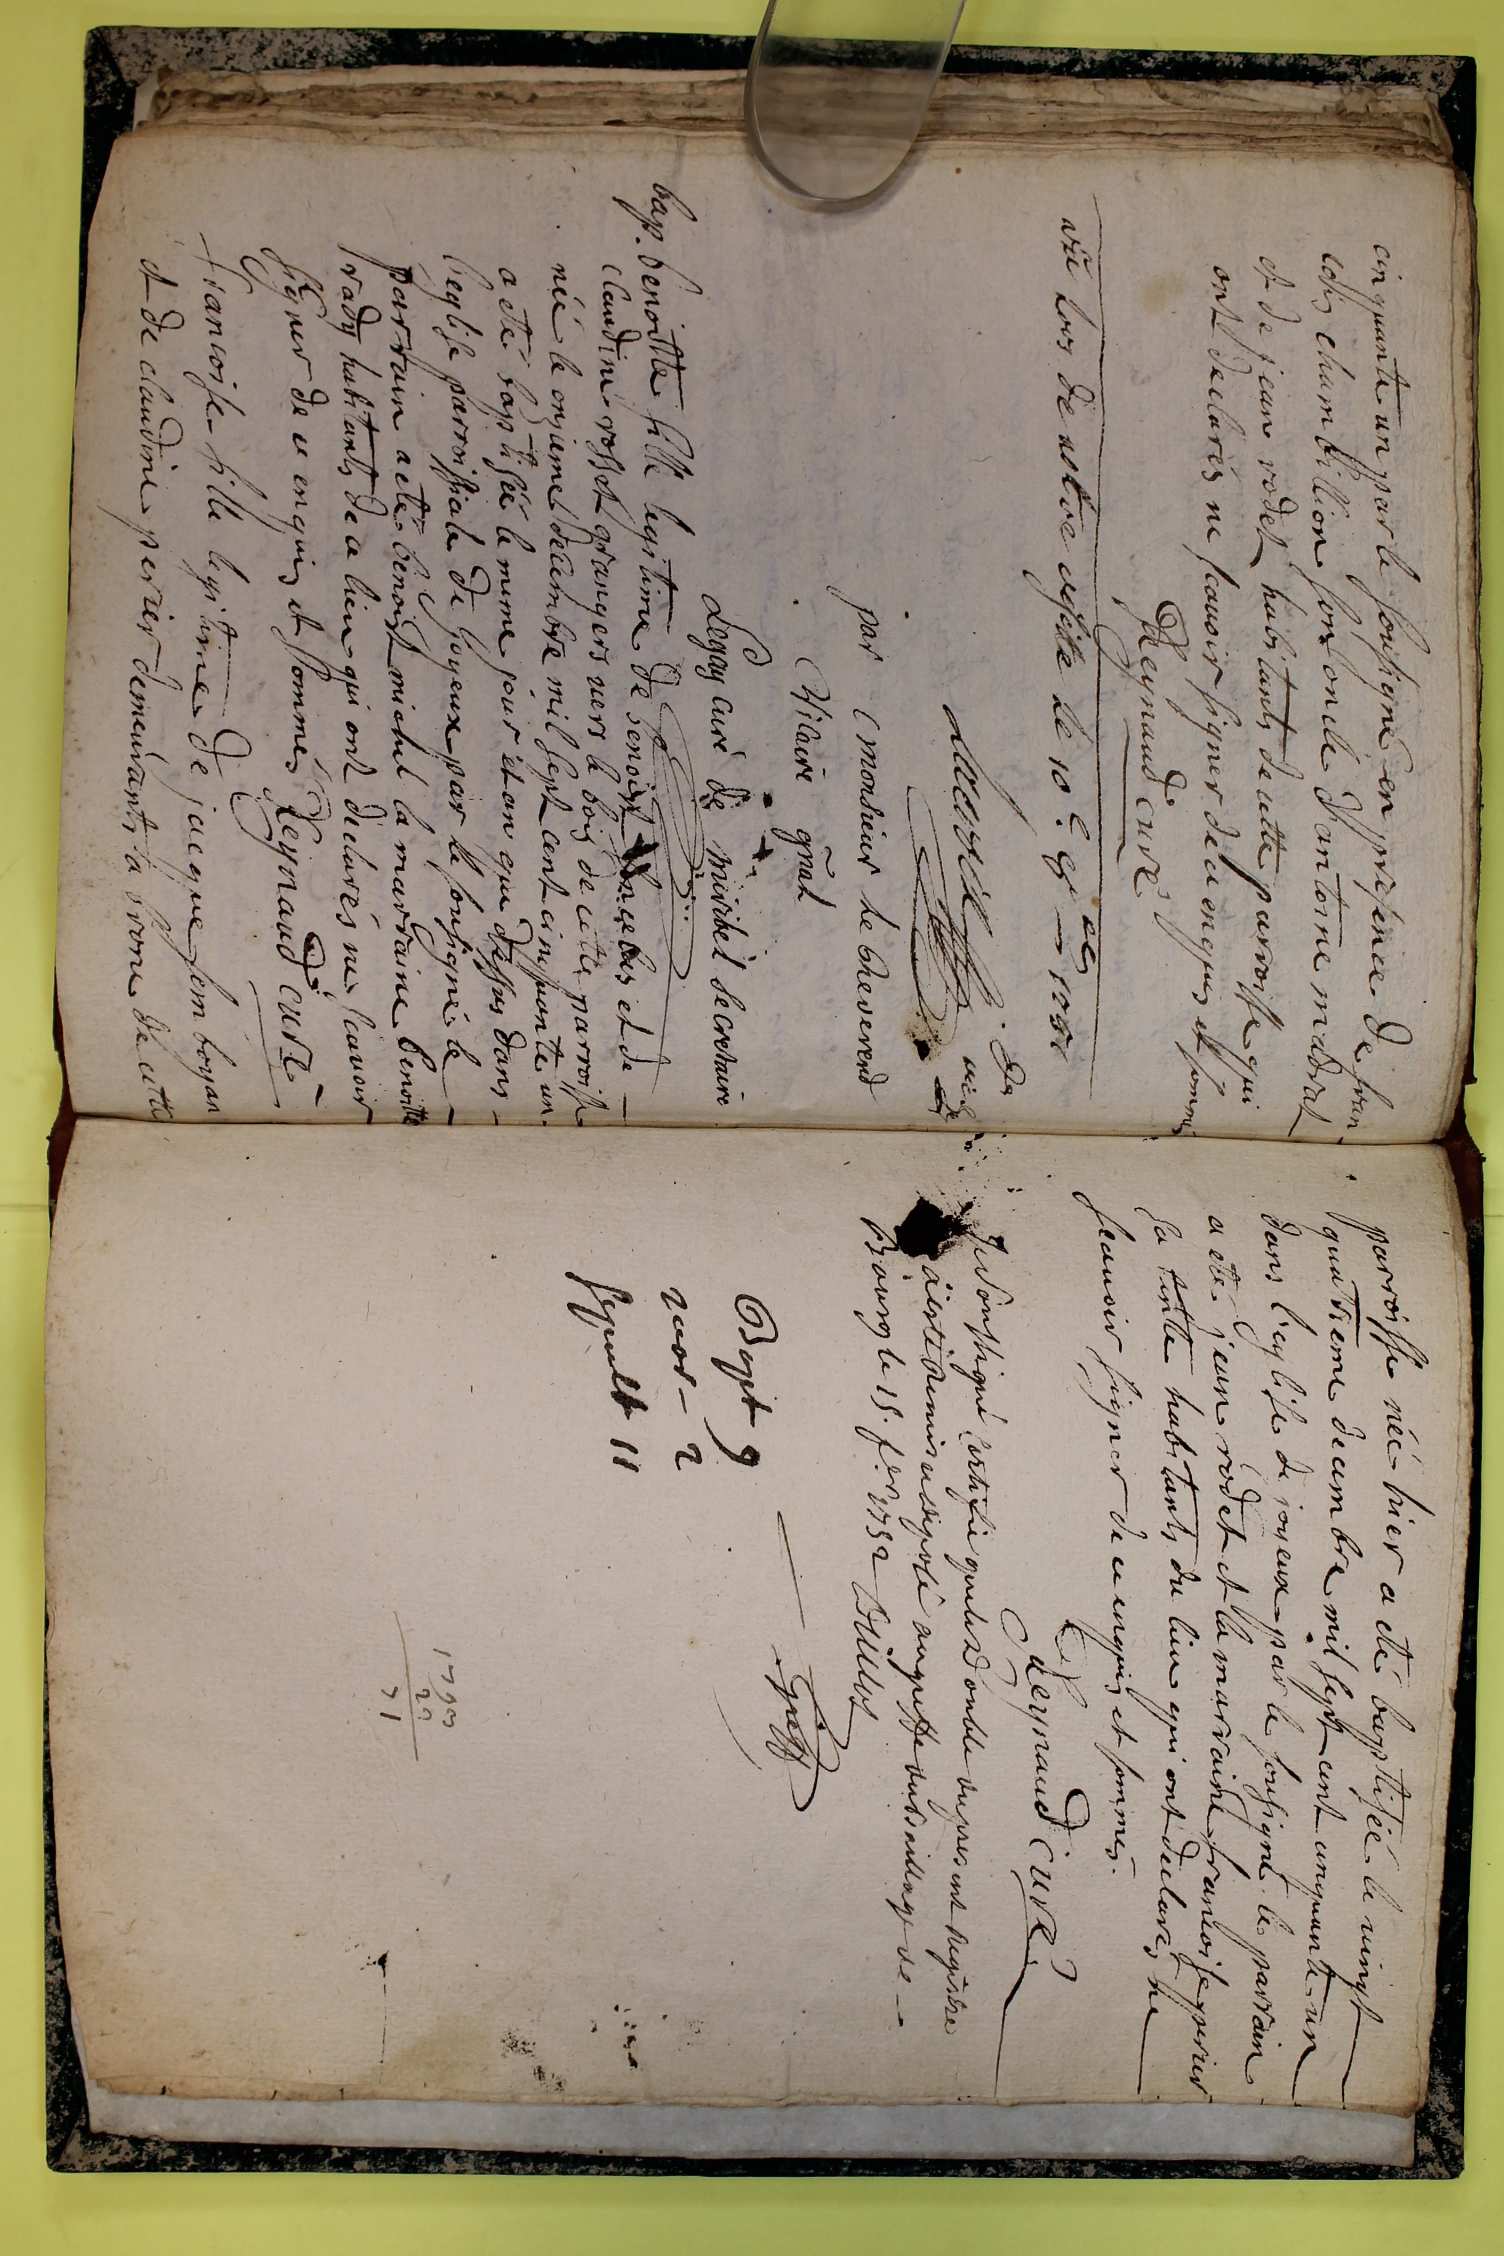 cinquante un par le soussigné en presence de fran
cois chambillion son oncle d'antoine madrat
et de jean rodet habitants de cette parroisse qui
ont declarés ne scavoir signer de ce enquis et sommés
Reynaud curé
vû lors de nostre visite le 10e
par Monsieur le Reverend
Vicaire gñal
Legay curé de miribel secretaire
bap. benoitte fille legitime de benoist et de
claudine rosset grangers vers le bois de cette parroisse
née le onzieme decembre mil sept cent cinquante un
a été baptisée le meme jour et an que dessus dans
l'eglise parroissiale de joyeux par le soussigné le
parrain a été benoist michel la marraine benoitte
rady habitants de ce lieu qui ont declarés ne scavoir
signer de ce enquis et sommés Reynaud curé
francoise fille legitime de jacque jemboyan
et de claudine perier demeurants a brone de cette
parroisse née hier a été baptisée le vingt
quatrieme decembre mil sept cent cinquante un
dans l'eglise de joyeux par le soussigné le parrain
a été jean rodet et la marraine francoise perier
sa tente habitants du lieu qui ont declarés ne
scavoir signer de ce enquis et sommés.
Reynaud curé
Je soussigné certifie que le double du present registre
a esté remis et deposé au greffe du bailliage de
Bourg le 15 fer 1752
greff
Bapt 9
mor - 2
sepult 11
1793
22
71